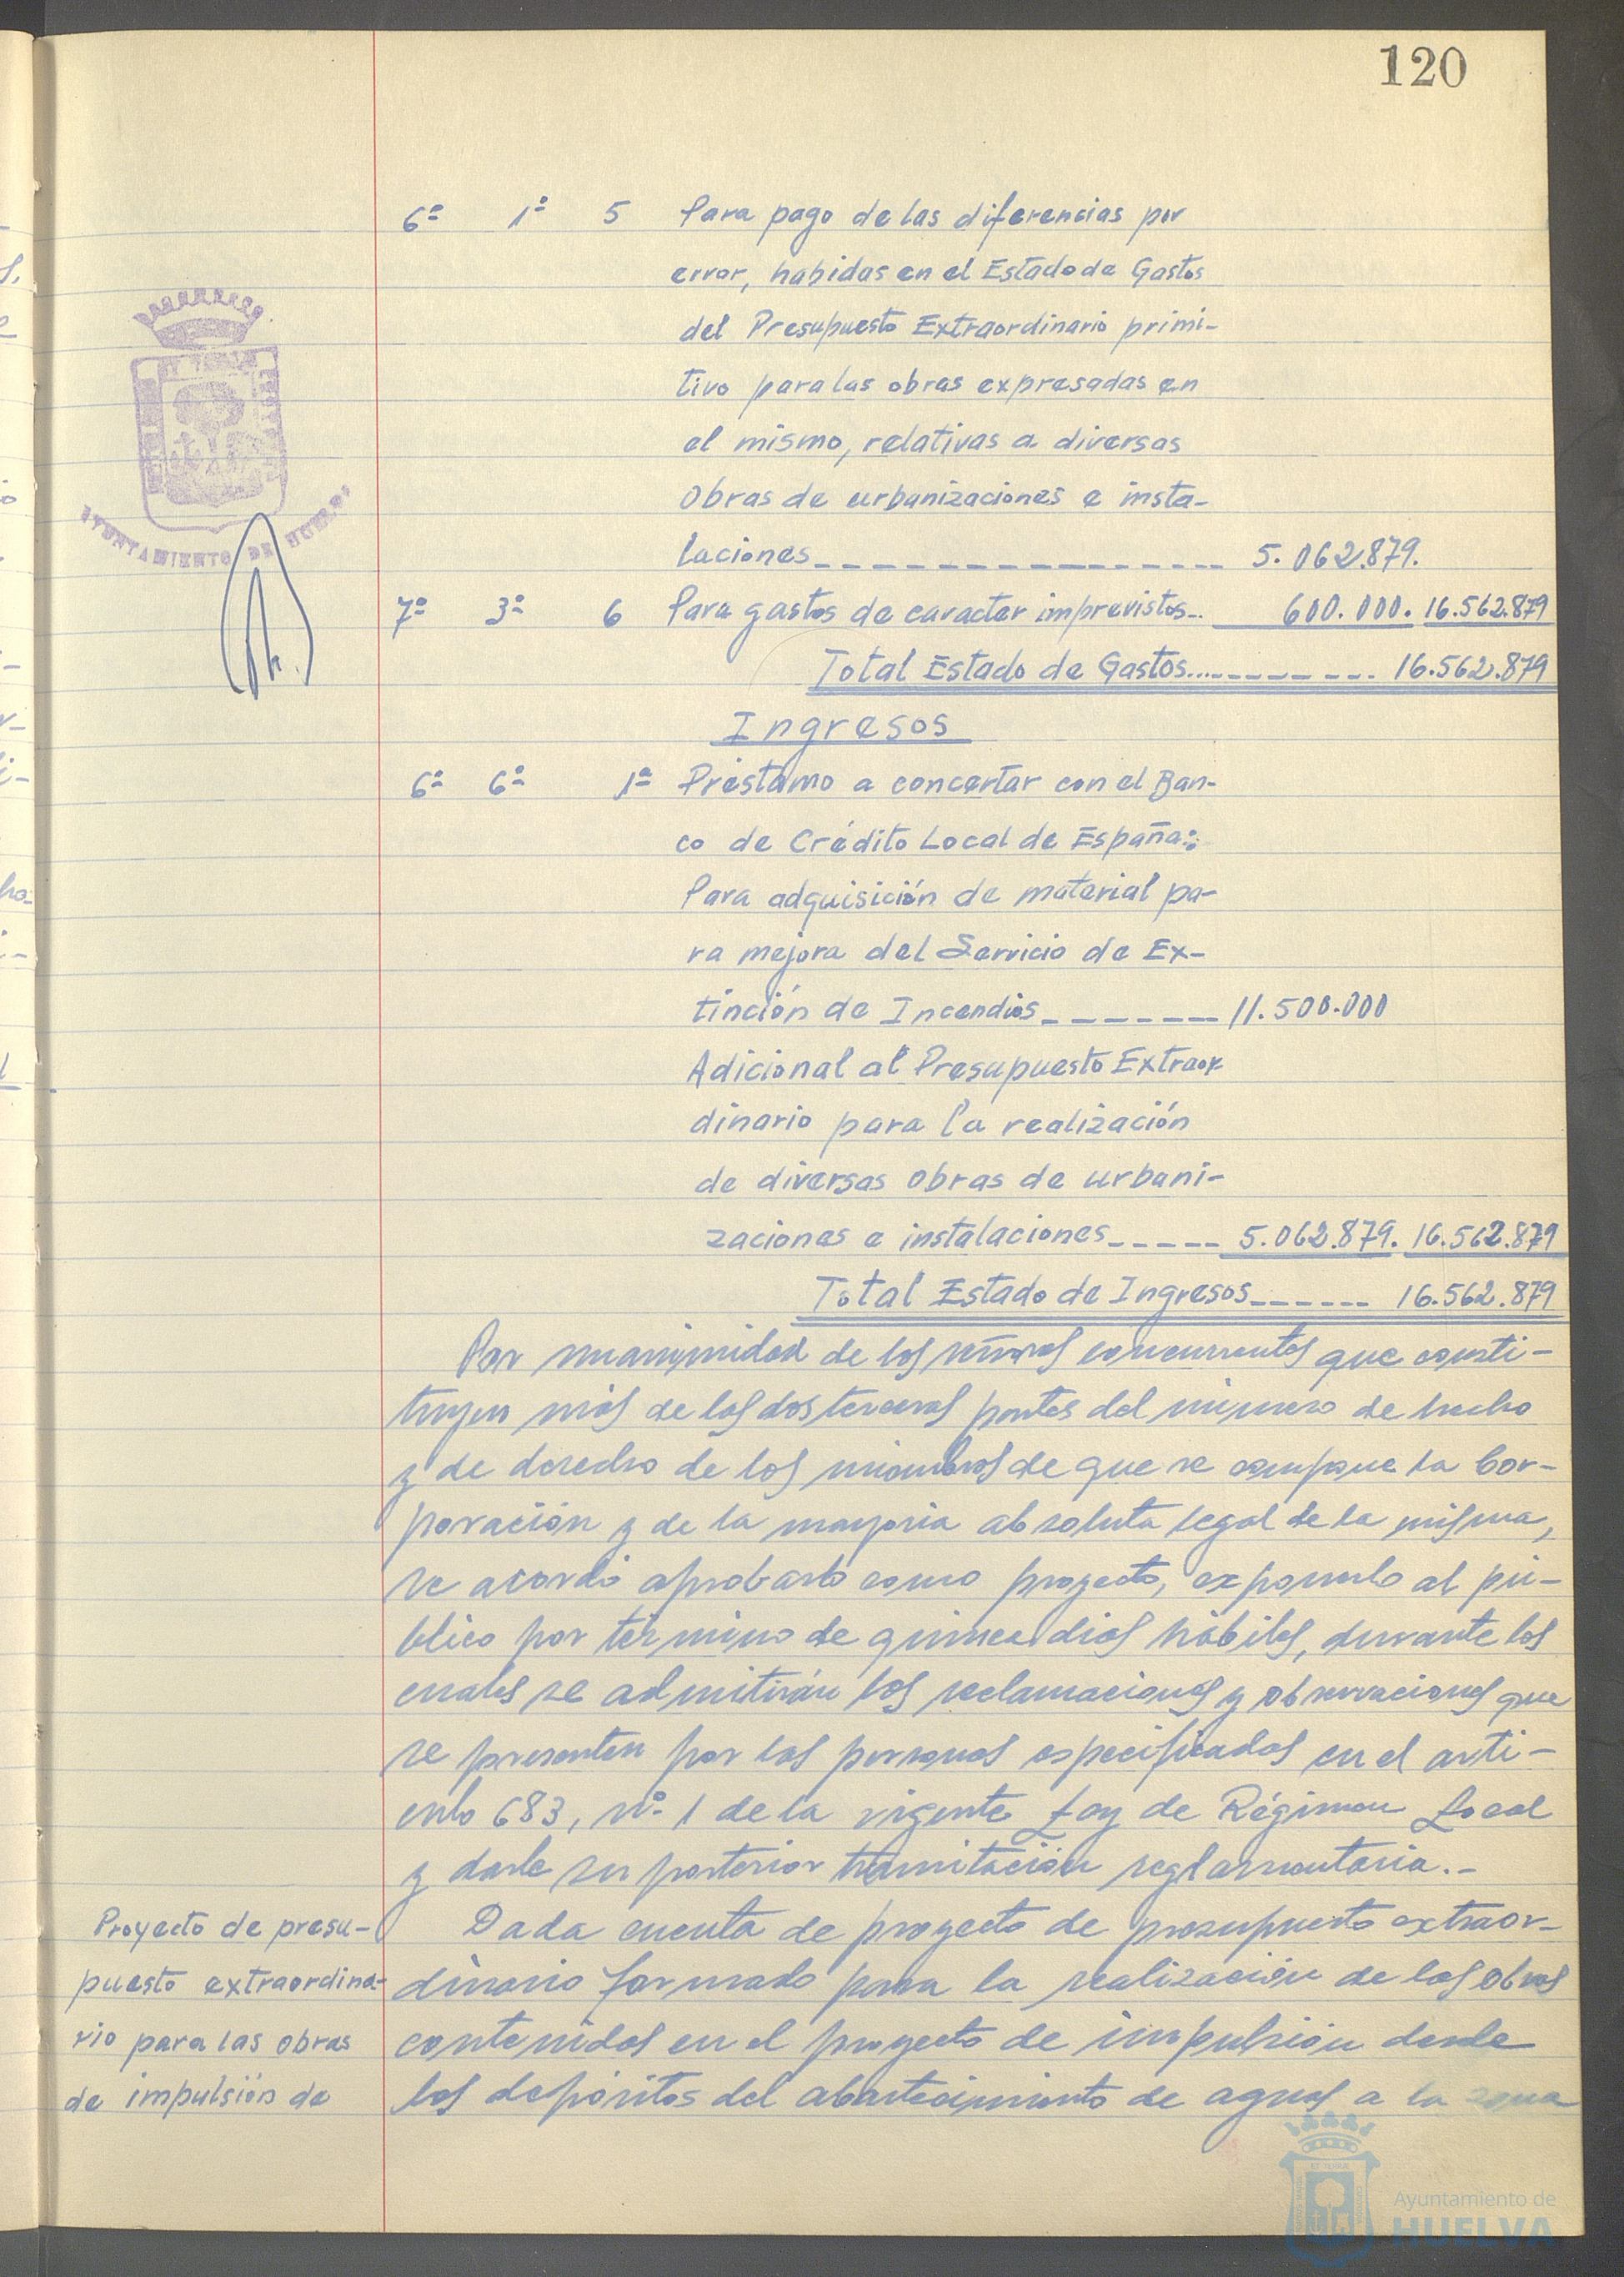 120
6º 1º 5 Para pago de las diferencias por
error, habidas en el Estado de Gastos
del Presupuesto Extraordinario primi-
tivo para las obras expresadas en
el mismo, relativas a diversas
obras de urbanizaciones e insta-
laciones_ _ _ _ _ _ _ _ _ _ 5.062.879.
7º 3º 6 Para gastos de caracter imprevistos_.. 600.000. 16.562.879
Total Estado de Gastos..._ _ _ _ _ 16.562.879
Ingresos
6º 6º 1º Préstamo a concertar con el Ban-
co de Crédito Local de España:
Para adquisición de material pa-
ra mejora del Servicio de Ex-
tinción de Incendios_ _ _ _ _ _ 11.500.000
Adicional al Presupuesto Extraor
dinario para la realización
de diversas obras de urbani-
zaciones e instalaciones_ _ _ _ _ 5.062.879. 16.562.879
Total Estado de Ingresos_ _ _ _ _ 16.562.879
Por unanimidad de los señores concurrentes que consti-
tuyen más de las dos terceras partes del número de hecho
y de derecho de los miembros de que se compone la Cor-
poración y de la mayoria absoluta legal de la misma,
se acordó aprobarlo como proyecto, exponerlo al pú-
blico por término de quince dias hábiles, durante los
cuales se admitirán las reclamaciones y observaciones que
se presenten por las personas especificadas en el artí-
culo 683, nº 1 de la vigente Ley de Régimen Local
y darle su posterior tramitación reglamentaria.-
Proyecto de presu-
puesto extraordina-
rio para las obras
de impulsión de
Dada cuenta de proyecto de presupuesto extraor-
dinario formado para la realización de las obras
contenidas en el proyecto de impulsión desde
los depósitos del abastecimiento de aguas a la zona
AYUNTAMIENTO DE HUELVA
Ayuntamiento de
HUELVA